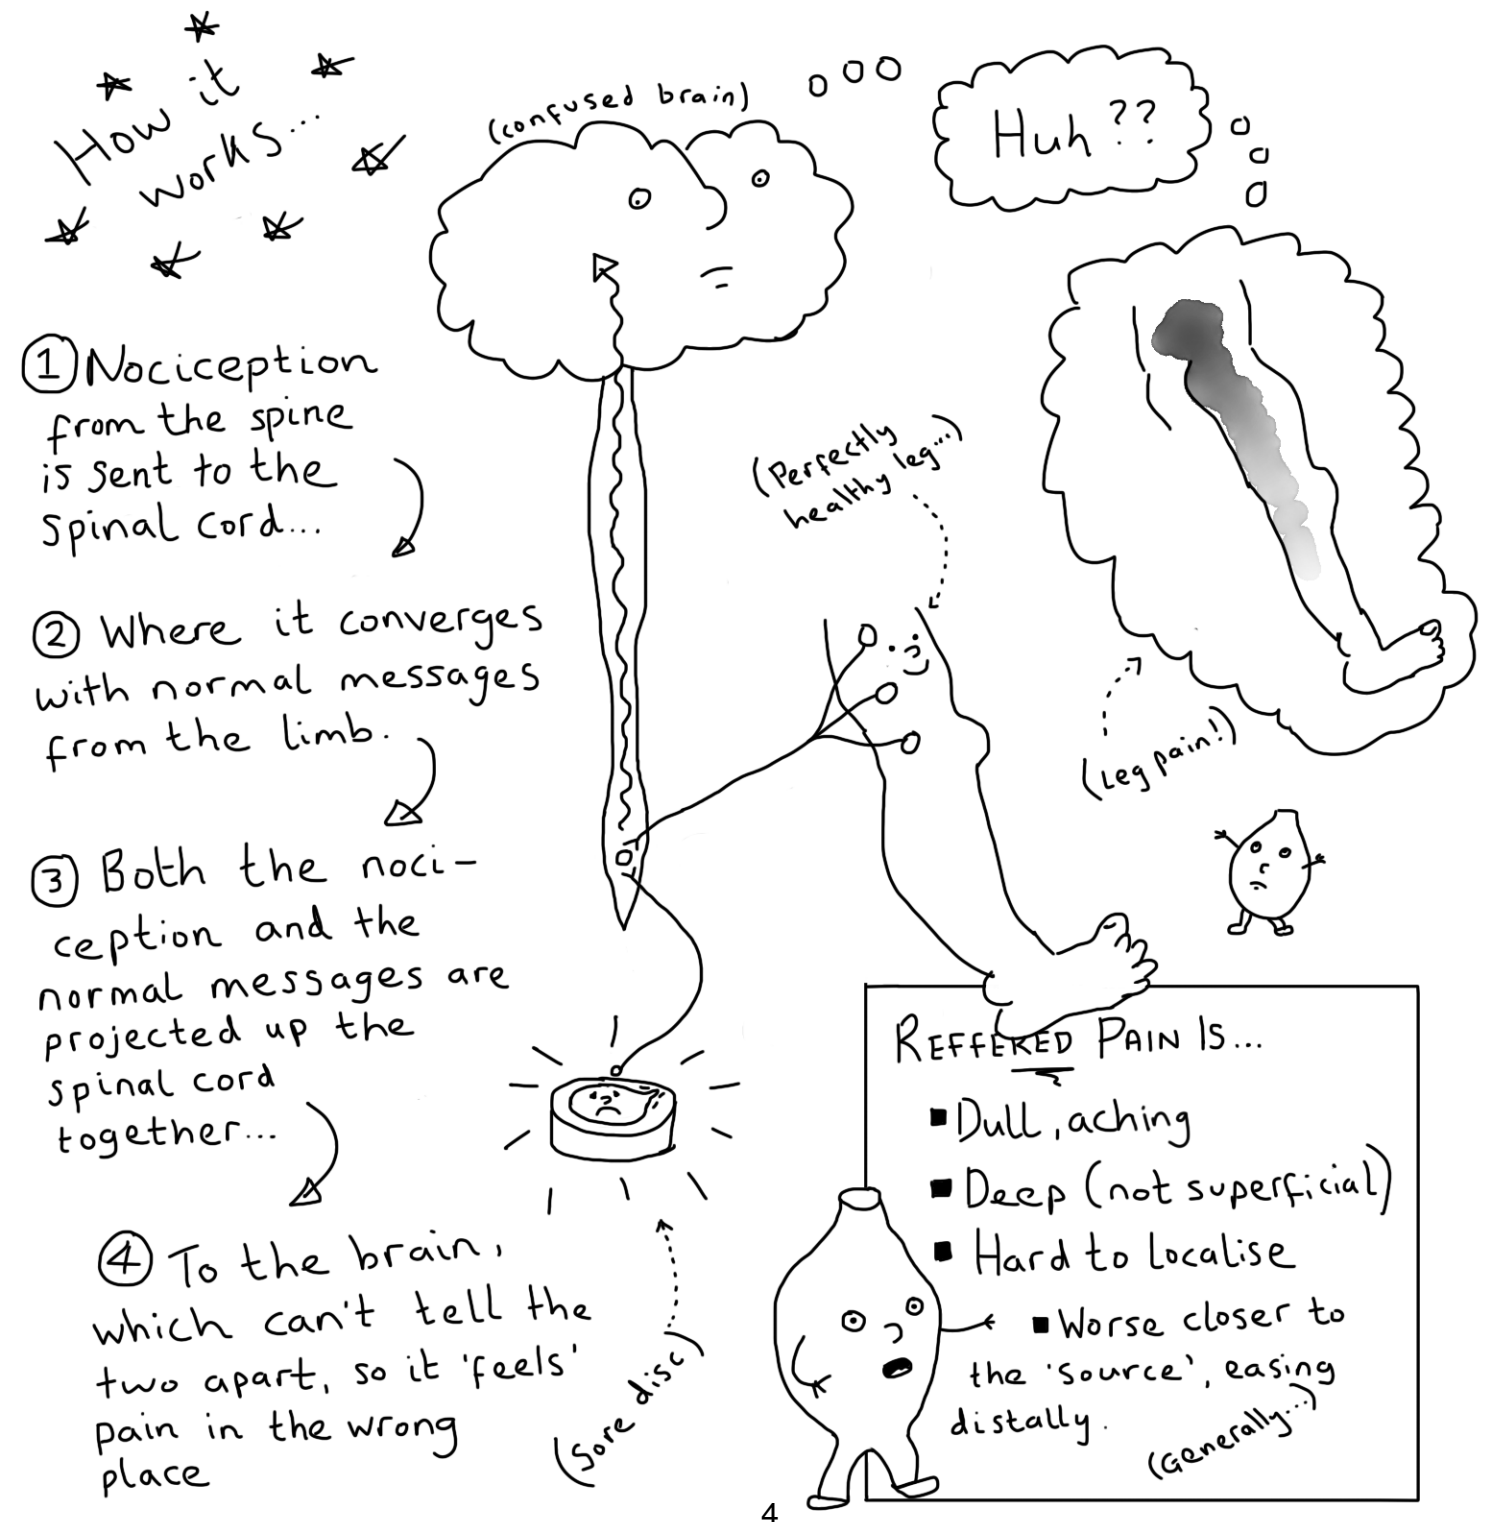 How it
works...
(confused brain)
Huh ??
① Nociception
from the spine
is sent to the
spinal cord...
② Where it converges
with normal messages
from the limb.
③ Both the noci-
ception and the
normal messages are
projected up the
spinal cord
together...
④ To the brain,
which can't tell the
two apart, so it 'feels'
pain in the wrong
place
(Perfectly
healthy leg...)
(Leg pain!)
(Sore disc)
REFFERED PAIN IS...
▪ Dull, aching
▪ Deep (not superficial)
▪ Hard to localise
▪ Worse closer to
the 'source', easing
distally.
(Generally...)
4